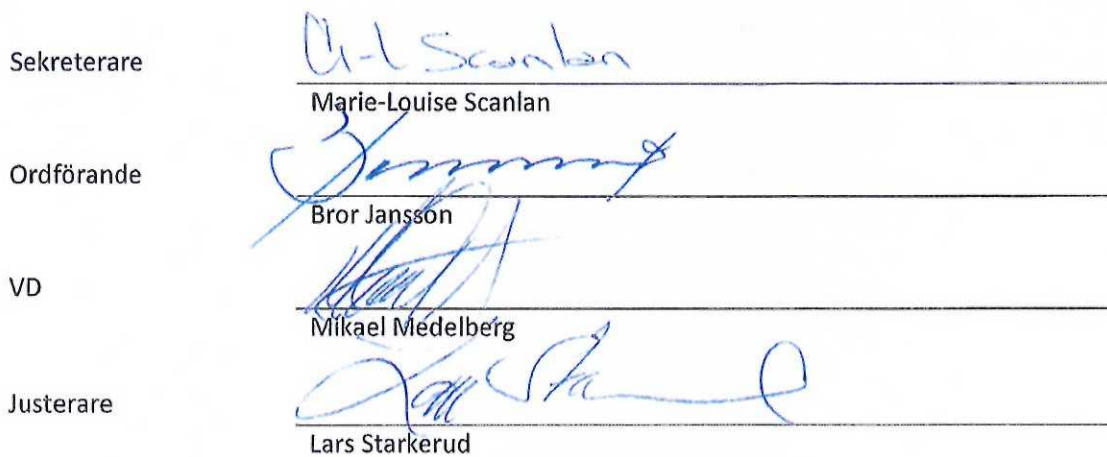 Sekreterare
M-L Scanlan
Marie-Louise Scanlan
Ordförande
Bror Jansson
VD
Mikael Medelberg
Justerare
Lars Starkerud